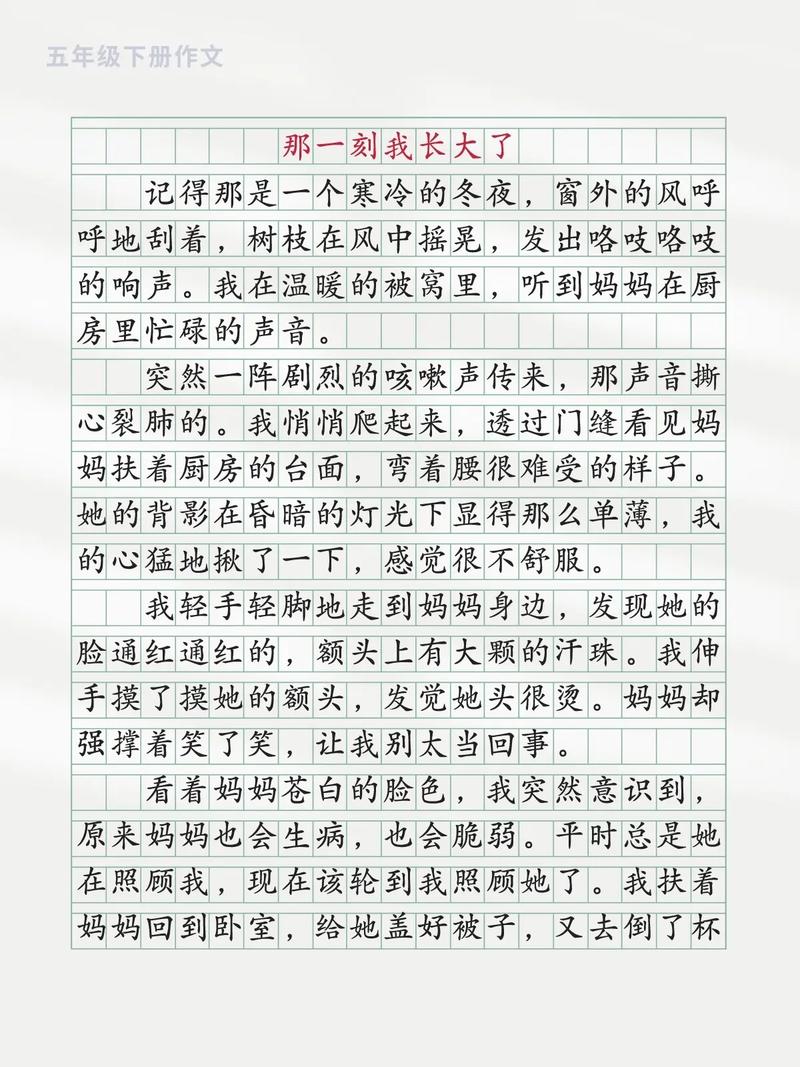 五年级下册作文
那一刻我长大了
记得那是一个寒冷的冬夜，窗外的风呼
呼地刮着，树枝在风中摇晃，发出咯吱咯吱
的响声。我在温暖的被窝里，听到妈妈在厨
房里忙碌的声音。
突然一阵剧烈的咳嗽声传来，那声音撕
心裂肺的。我悄悄爬起来，透过门缝看见妈
妈扶着厨房的台面，弯着腰很难受的样子。
她的背影在昏暗的灯光下显得那么单薄，我
的心猛地揪了一下，感觉很不舒服。
我轻手轻脚地走到妈妈身边，发现她的
脸通红通红的，额头上有大颗的汗珠。我伸
手摸了摸她的额头，发觉她头很烫。妈妈却
强撑着笑了笑，让我别太当回事。
看着妈妈苍白的脸色，我突然意识到，
原来妈妈也会生病，也会脆弱。平时总是她
在照顾我，现在该轮到我照顾她了。我扶着
妈妈回到卧室，给她盖好被子，又去倒了杯